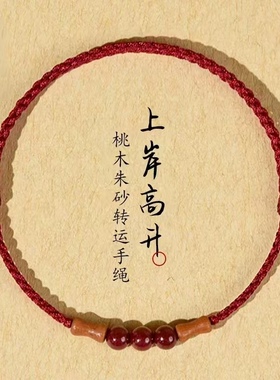 上岸高升
桃木朱砂转运手绳